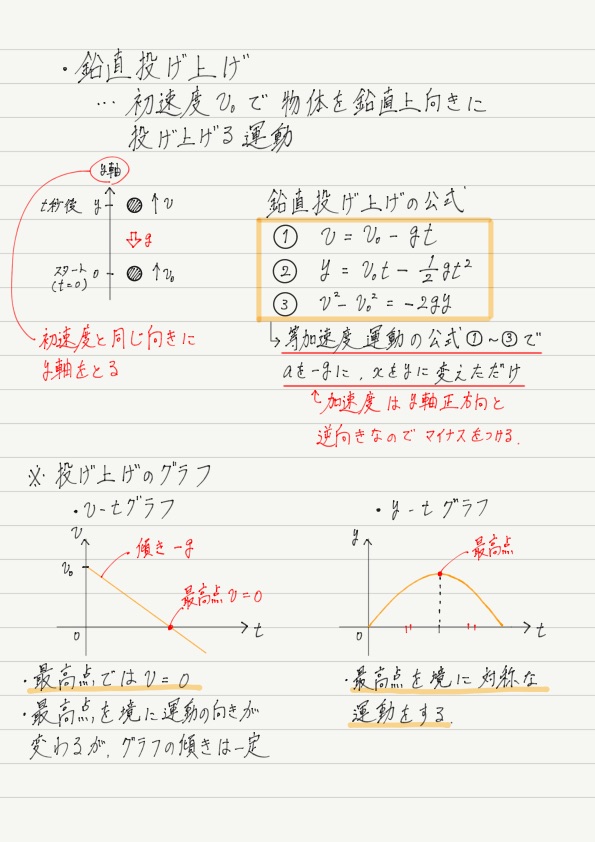 ・鉛直投げ上げ
… 初速度 v₀ で 物体を鉛直上向きに
投げ上げる運動
y軸
t秒後 y ↑v
⇩g
スタート 0 ↑v₀
(t=0)
初速度と同じ向きに
y軸をとる
鉛直投げ上げの公式
① v = v₀ − gt
② y = v₀t − 1/2 gt²
③ v² − v₀² = −2gy
↳ 等加速度運動の公式①~③で
aを−gに, xをyに変えただけ
↑加速度はy軸正方向と
逆向きなのでマイナスをつける.
※ 投げ上げのグラフ
・v−tグラフ
v
v₀
傾き −g
最高点 v = 0
0
t
・最高点では v = 0
・最高点を境に運動の向きが
変わるが, グラフの傾きは一定
・y−tグラフ
y
最高点
0
t
・最高点を境に対称な
運動をする.